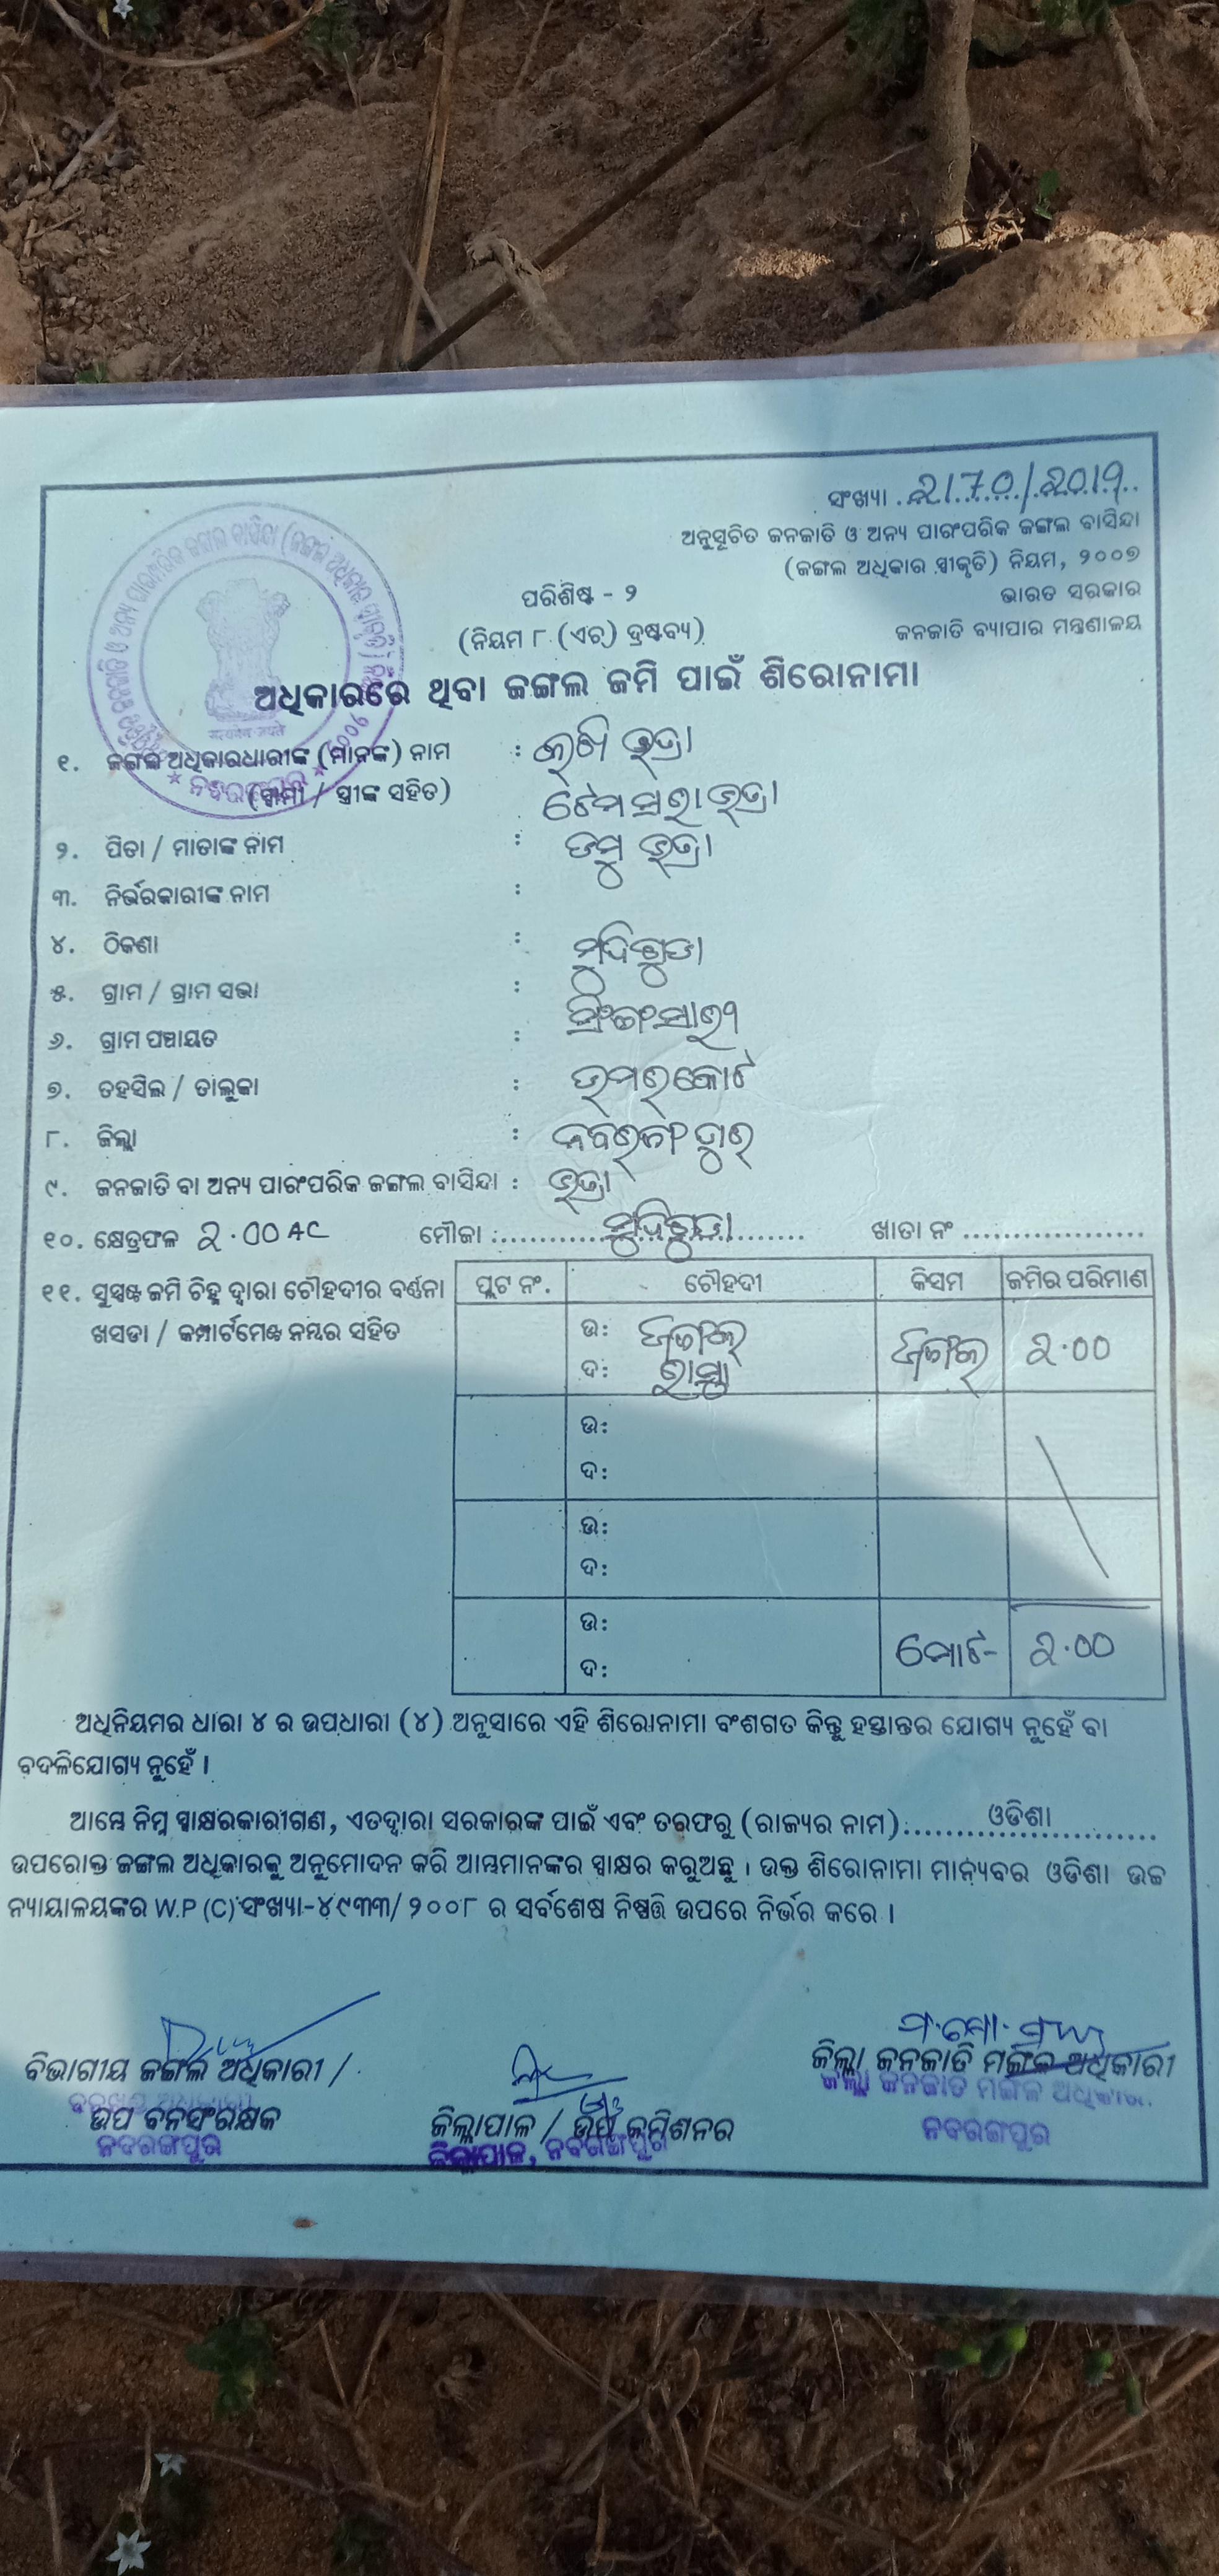 ସଂଖ୍ୟା 2170/2019
ଅନୁସୂଚିତ ଜନଜାତି ଓ ଅନ୍ୟ ପାରଂପରିକ ଜଙ୍ଗଲ ବାସିନ୍ଦା
(ଜଙ୍ଗଲ ଅଧିକାର ସ୍ୱୀକୃତି) ନିୟମ, ୨୦୦୭
ପରିଶିଷ୍ଟ - ୨
ଭାରତ ସରକାର
(ନିୟମ ୮ (ଏଚ୍) ଦ୍ରଷ୍ଟବ୍ୟ)
ଜନଜାତି ବ୍ୟାପାର ମନ୍ତ୍ରଣାଳୟ
ଅଧିକାରରେ ଥିବା ଜଙ୍ଗଲ ଜମି ପାଇଁ ଶିରୋନାମା
୧. ଜଙ୍ଗଲ ଅଧିକାରଧାରୀଙ୍କ (ମାନଙ୍କ) ନାମ : ଭତ୍ରା
(ସ୍ୱାମୀ / ସ୍ତ୍ରୀଙ୍କ ସହିତ) ଭତ୍ରା
୨. ପିତା / ମାତାଙ୍କ ନାମ : ଡମ୍ବୁ ଭତ୍ରା
୩. ନିର୍ଭରକାରୀଙ୍କ ନାମ :
୪. ଠିକଣା : ମୁଦିଗୁଡା
୫. ଗ୍ରାମ / ଗ୍ରାମ ସଭା :
୬. ଗ୍ରାମ ପଞ୍ଚାୟତ :
୭. ତହସିଲ / ତାଲୁକା : ଉମରକୋଟ
୮. ଜିଲ୍ଲା : ନବରଂଗପୁର
୯. ଜନଜାତି ବା ଅନ୍ୟ ପାରଂପରିକ ଜଙ୍ଗଲ ବାସିନ୍ଦା : ଭତ୍ରା
୧୦. କ୍ଷେତ୍ରଫଳ 2.00 AC ମୌଜା : ମୁଦିଗୁଡା ଖାତା ନଂ
୧୧. ସୁସ୍ପଷ୍ଟ ଜମି ଚିହ୍ନ ଦ୍ୱାରା ଚୌହଦୀର ବର୍ଣ୍ଣନା
ଖସଡା / କମ୍ପାର୍ଟମେଣ୍ଟ ନମ୍ବର ସହିତ
ପ୍ଲଟ ନଂ. ଚୌହଦୀ କିସମ ଜମିର ପରିମାଣ
ଉ: ଜଂଗଲ ଜଂଗଲ 2.00
ଦ: ରାସ୍ତା
ଉ:
ଦ:
ଉ:
ଦ:
ଉ: ମୋଟ- 2.00
ଦ:
ଅଧିନିୟମର ଧାରା ୪ ର ଉପଧାରା (୪) ଅନୁସାରେ ଏହି ଶିରୋନାମା ବଂଶଗତ କିନ୍ତୁ ହସ୍ତାନ୍ତର ଯୋଗ୍ୟ ନୁହେଁ ବା
ବଦଳିଯୋଗ୍ୟ ନୁହେଁ ।
ଆମ୍ଭେ ନିମ୍ନ ସ୍ୱାକ୍ଷରକାରୀଗଣ, ଏତଦ୍ୱାରା ସରକାରଙ୍କ ପାଇଁ ଏବଂ ତରଫରୁ (ରାଜ୍ୟର ନାମ) ଓଡିଶା
ଉପରୋକ୍ତ ଜଙ୍ଗଲ ଅଧିକାରକୁ ଅନୁମୋଦନ କରି ଆମ୍ଭମାନଙ୍କର ସ୍ୱାକ୍ଷର କରୁଅଛୁ । ଉକ୍ତ ଶିରୋନାମା ମାନ୍ୟବର ଓଡିଶା ଉଚ୍ଚ
ନ୍ୟାୟାଳୟଙ୍କର W.P (C) ସଂଖ୍ୟା-୪୯୩୩/ ୨୦୦୮ ର ସର୍ବଶେଷ ନିଷ୍ପତ୍ତି ଉପରେ ନିର୍ଭର କରେ ।
ବିଭାଗୀୟ ଜଙ୍ଗଲ ଅଧିକାରୀ /
ଉପ ବନସଂରକ୍ଷକ
ନବରଙ୍ଗପୁର
ଜିଲ୍ଲାପାଳ / ଉପ କମିଶନର
ଜିଲ୍ଲାପାଳ, ନବରଙ୍ଗପୁର
ଜିଲ୍ଲା ଜନଜାତି ମଙ୍ଗଳ ଅଧିକାରୀ
ଜିଲ୍ଲା ଜନଜାତି ମଙ୍ଗଳ ଅଧିକାରୀ
ନବରଙ୍ଗପୁର